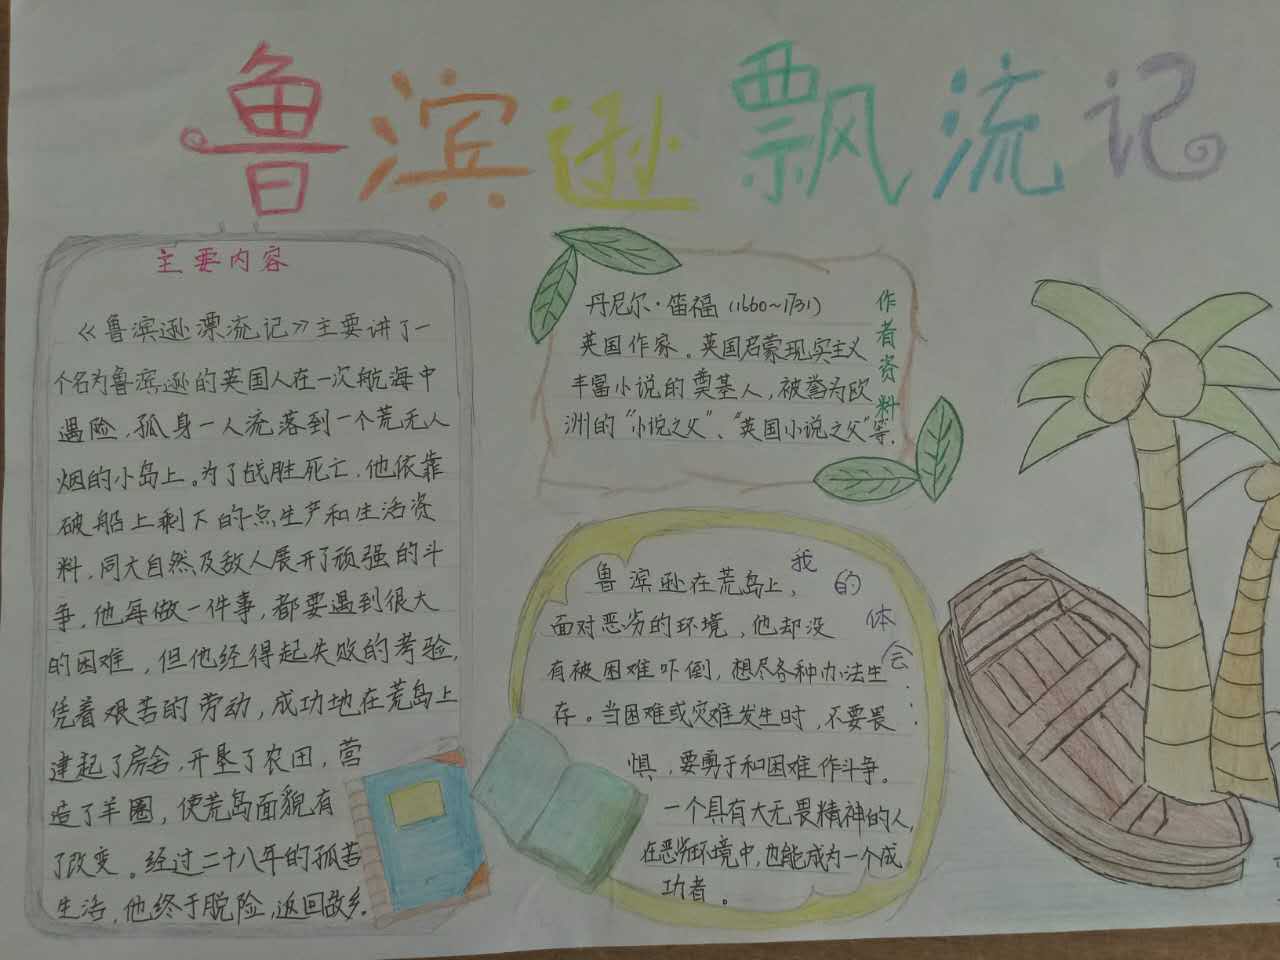 鲁滨逊飘流记
主要内容
《鲁滨逊漂流记》主要讲了一
个名为鲁滨逊的英国人在一次航海中
遇险，孤身一人流落到一个荒无人
烟的小岛上。为了战胜死亡，他依靠
破船上剩下的点生产和生活资
料，同大自然及敌人展开了顽强的斗
争，他每做一件事，都要遇到很大
的困难，但他经得起失败的考验，
凭着艰苦的劳动，成功地在荒岛上
建起了房舍，开垦了农田，营
造了羊圈，使荒岛面貌有
了改变。经过二十八年的孤苦
生活，他终于脱险，返回故乡。
作者资料
丹尼尔·笛福（1660~1731）
英国作家。英国启蒙现实主义
丰富小说的奠基人，被誉为欧
洲的“小说之父”、“英国小说之父”等.
我的体会：
鲁滨逊在荒岛上，
面对恶劣的环境，他却没
有被困难吓倒，想尽各种办法生
存。当困难或灾难发生时，不要畏
惧，要勇于和困难作斗争。
一个具有大无畏精神的人，
在恶劣环境中，也能成为一个成
功者。